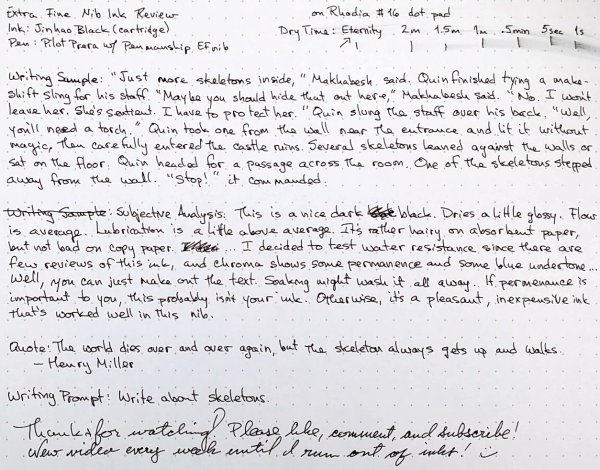 Extra Fine Nib Ink Review on Rhodia #16 dot pad
Ink: Jinhao Black (cartridge) Dry Time: Eternity 2m 1.5m 1m .5min 5sec 1s
Pen: Pilot Prera w/ Penmanship EF nib
Writing Sample: "Just more skeletons inside," Makhabesh said. Quin finished tying a make-
shift sling for his staff. "Maybe you should hide that out here," Makhabesh said. "No. I won't
leave her. She's sentient. I have to protect her." Quin slung the staff over his back. "Well,
you'll need a torch." Quin took one from the wall near the entrance and lit it without
magic, then carefully entered the castle ruins. Several skeletons leaned against the walls or
sat on the floor. Quin headed for a passage across the room. One of the skeletons stepped
away from the wall. "Stop!" it commanded.
Writing Sample: Subjective Analysis: This is a nice dark black. Dries a little glossy. Flow
is average. Lubrication is a little above average. It's rather hairy on absorbent paper,
but not bad on copy paper. ... I decided to test water resistance since there are
few reviews of this ink, and chroma shows some permanence and some blue undertone...
Well, you can just make out the text. Soaking might wash it all away. If permenance is
important to you, this probably isn't your ink. Otherwise, it's a pleasant, inexpensive ink
that's worked well in this nib.
Quote: The world dies over and over again, but the skeleton always gets up and walks.
— Henry Miller
Writing Prompt: Write about skeletons.
Thanks for watching! Please like, comment, and subscribe!
New video every week until I run out of inks!